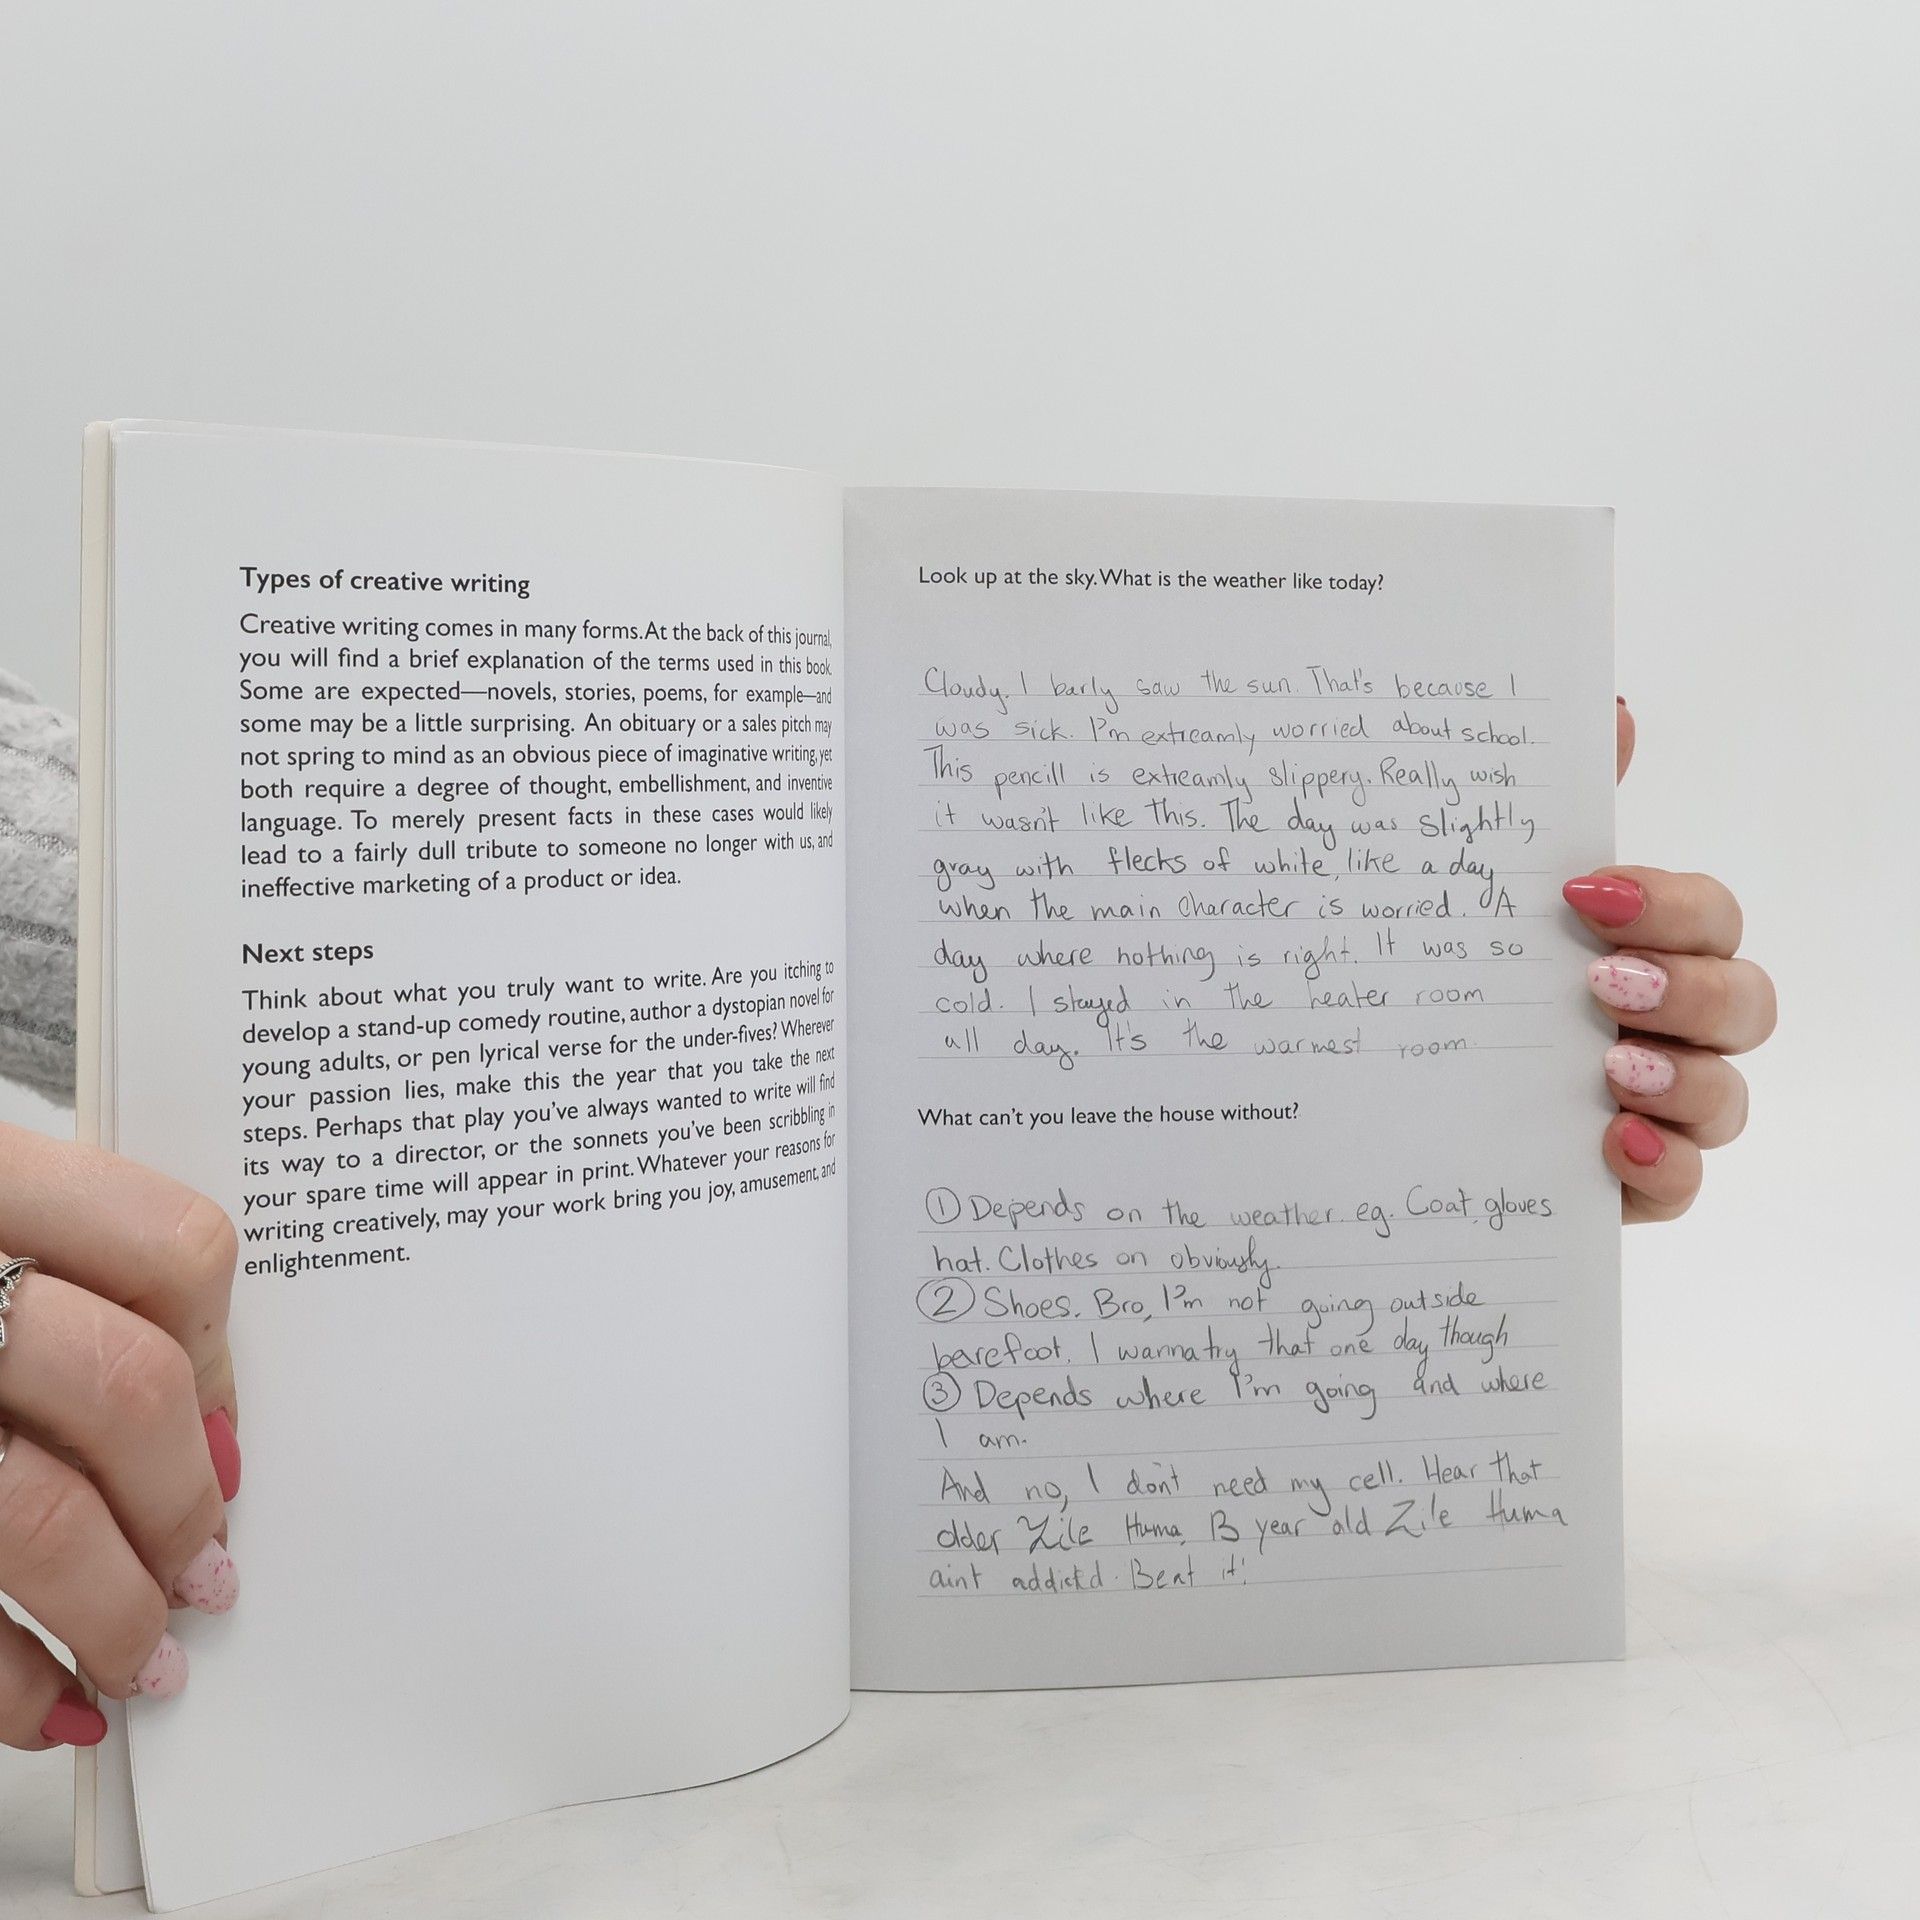 Types of creative writing
Creative writing comes in many forms. At the back of this journal,
you will find a brief explanation of the terms used in this book.
Some are expected—novels, stories, poems, for example—and
some may be a little surprising. An obituary or a sales pitch may
not spring to mind as an obvious piece of imaginative writing, yet
both require a degree of thought, embellishment, and inventive
language. To merely present facts in these cases would likely
lead to a fairly dull tribute to someone no longer with us, and
ineffective marketing of a product or idea.
Next steps
Think about what you truly want to write. Are you itching to
develop a stand-up comedy routine, author a dystopian novel for
young adults, or pen lyrical verse for the under-fives? Wherever
your passion lies, make this the year that you take the next
steps. Perhaps that play you've always wanted to write will find
its way to a director, or the sonnets you've been scribbling in
your spare time will appear in print. Whatever your reasons for
writing creatively, may your work bring you joy, amusement, and
enlightenment.
Look up at the sky. What is the weather like today?
Cloudy. I barly saw the sun. That's because I
was sick. I'm extreamly worried about school.
This pencill is extreamly slippery. Really wish
it wasn't like this. The day was slightly
gray with flecks of white, like a day
when the main character is worried. A
day where nothing is right. It was so
cold. I stayed in the heater room
all day. It's the warmest room.
What can't you leave the house without?
① Depends on the weather. eg. Coat, gloves
hat. Clothes on obviously.
② Shoes. Bro, I'm not going outside
barefoot. I wanna try that one day though
③ Depends where I'm going and where
I am.
And no, I don't need my cell. Hear that
older Zile Huma, 13 year old Zile Huma
aint addictd. Beat it!